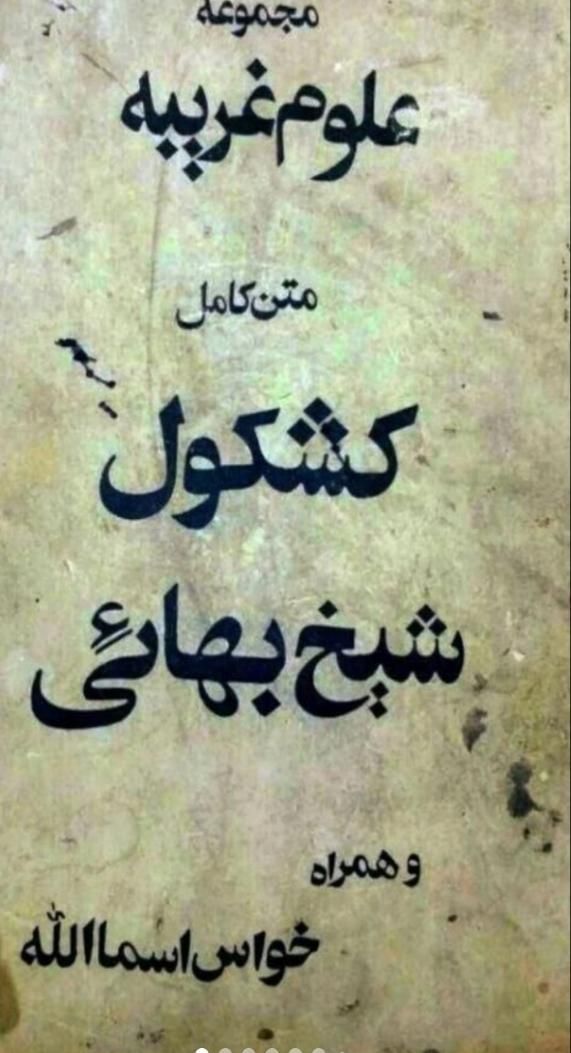 مجموعه
علوم غریبه
متن کامل
کشکول
شیخ بهائی
و همراه
خواس اسما الله